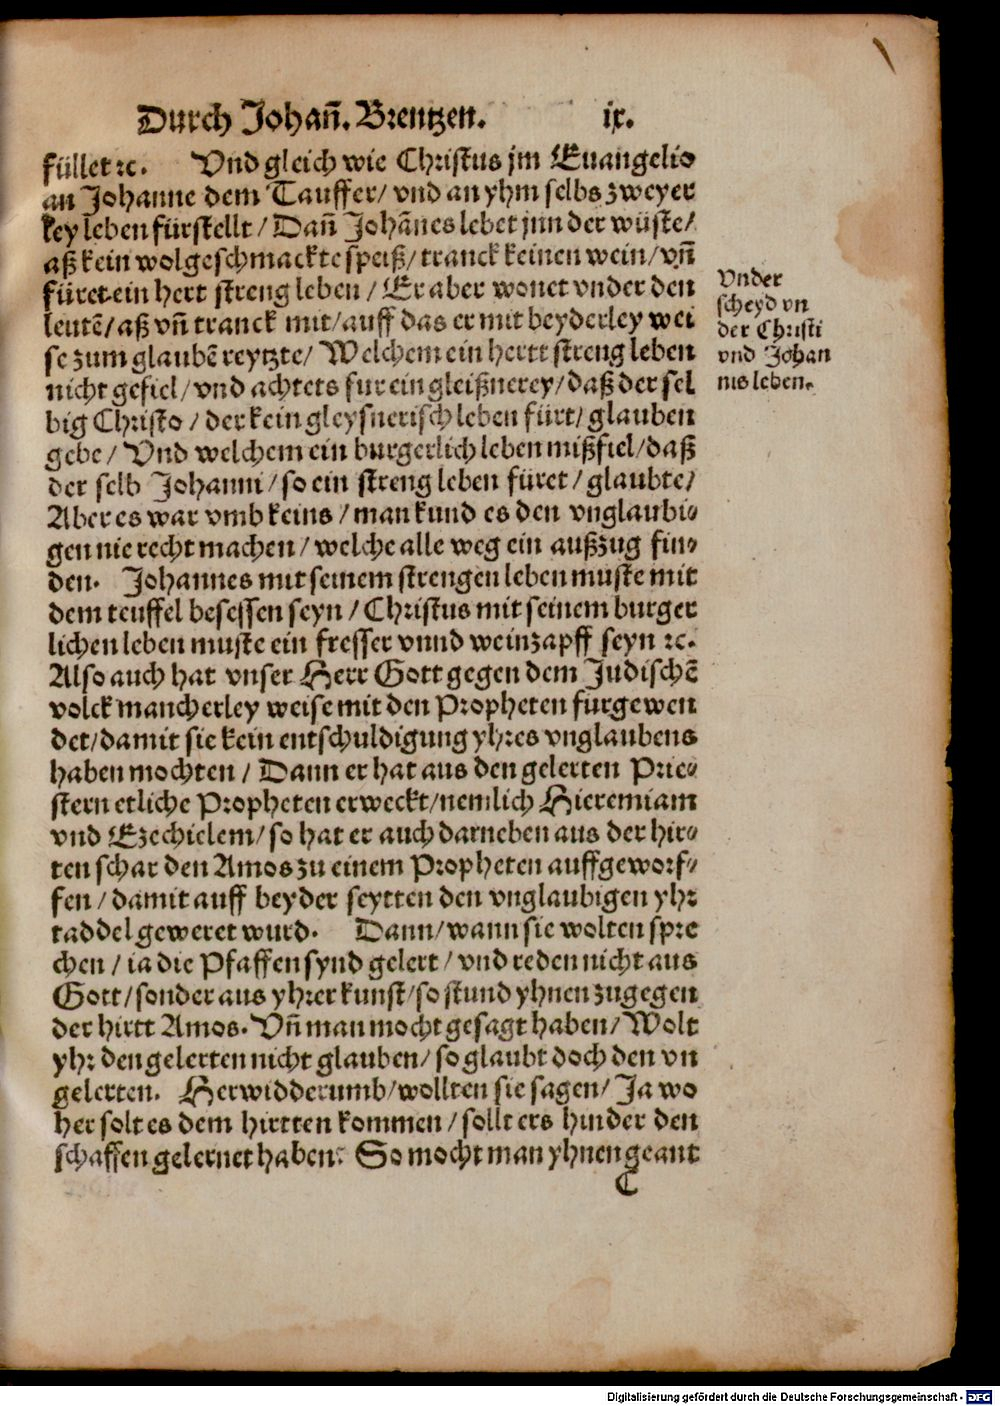 Durch Johañ. Brentzen. ix.
füllet ꝛc. Vnd gleich wie Christus jm Euangelio
an Johanne dem Tauffer/ vnd an yhm selbs zweyer
key leben fürstellt/ Dañ Johãnes lebet jnn der wüste/
aß kein wolgeschmackte speiß/ tranck keinen wein/ vñ
füret ein hert streng leben/ Er aber wonet vnder den
leutẽ/ aß vñ tranck mit/ auff das er mit beyderley wei
se zum glaubẽ reytzte/ Welchem ein hertt streng leben
nicht gefiel/ vnd achtets fur ein gleißnerey/ daß der sel
big Christo/ der kein gleysnerisch leben fürt/ glauben
gebe/ Vnd welchem ein burgerlich leben mißfiel/ daß
der selb Johanni/ so ein streng leben füret/ glaubte/
Aber es war vmb keins/ man kund es den vnglaubi⸗
gen nie recht machen/ welche alle weg ein außzug fin⸗
den. Johannes mit seinem strengen leben muste mit
dem teuffel besessen seyn/ Christus mit seinem burger
lichen leben muste ein fresser vnnd weinzapff seyn ꝛc.
Also auch hat vnser Herr Gott gegen dem Judischẽ
volck mancherley weise mit den Propheten fürgewen
det/ damit sie kein entschuldigung yhres vnglaubens
haben mochten/ Dann er hat aus den gelerten Prie⸗
stern etliche Propheten erweckt/ nemlich Hieremiam
vnd Ezechielem/ so hat er auch darneben aus der hir⸗
ten schar den Amos zu einem Propheten auffgeworf⸗
fen/ damit auff beyder seytten den vnglaubigen yhr
taddel geweret wurd. Dann/ wann sie wolten spre
chen/ ia die Pfaffen synd gelert/ vnd reden nicht aus
Gott/ sonder aus yhrer kunst/ so stund yhnen zugegen
der hirtt Amos. Vñ man mocht gesagt haben/ Wolt
yhr den gelerten nicht glauben/ so glaubt doch den vn
gelerten. Herwidderumb/ wollten sie sagen/ Ja wo
her solt es dem hirtten kommen/ sollt ers hinder den
schaffen gelernet haben. So mocht man yhnen geant
C
Vnder
scheyd vn
der Christi
vnd Johan
nis leben.
Digitalisierung gefördert durch die Deutsche Forschungsgemeinschaft - DFG